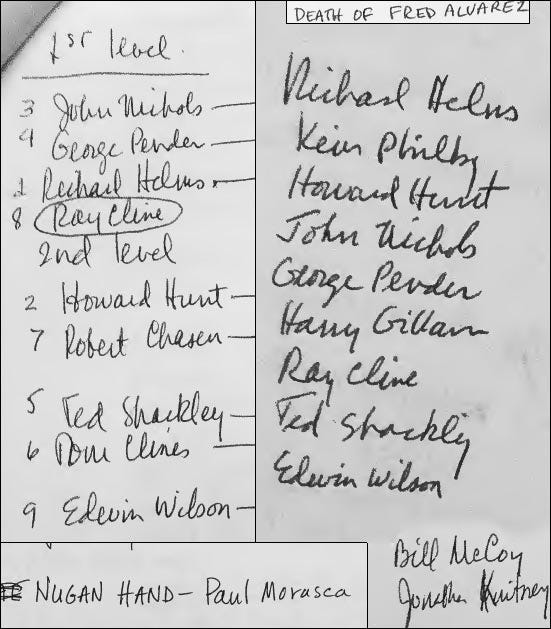 1st level.
3 John Nichols —
4 George Pender —
1 Richard Helms. —
8 Ray Cline
2nd level
2 Howard Hunt —
7 Robert Chasen —
5 Ted Shackley —
6 Tom Clines —
9 Edwin Wilson —
DEATH OF FRED ALVAREZ
Richard Helms
Kim Philby
Howard Hunt
John Nichols
George Pender
Harry
Ray Cline
Ted Shackly
Edwin Wilson
Bill McCoy
Jonathan Kwitney
NUGAN HAND — Paul Morasca